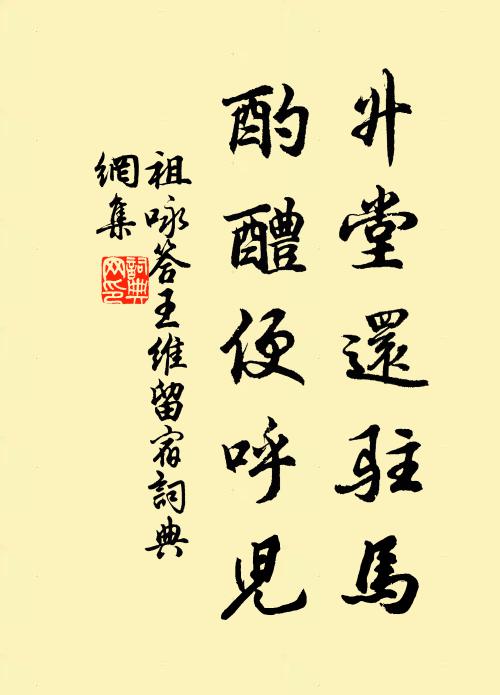 升堂還駐馬
酌醴便呼兒
祖咏答王維留宿詞典
網集
詞典
网印